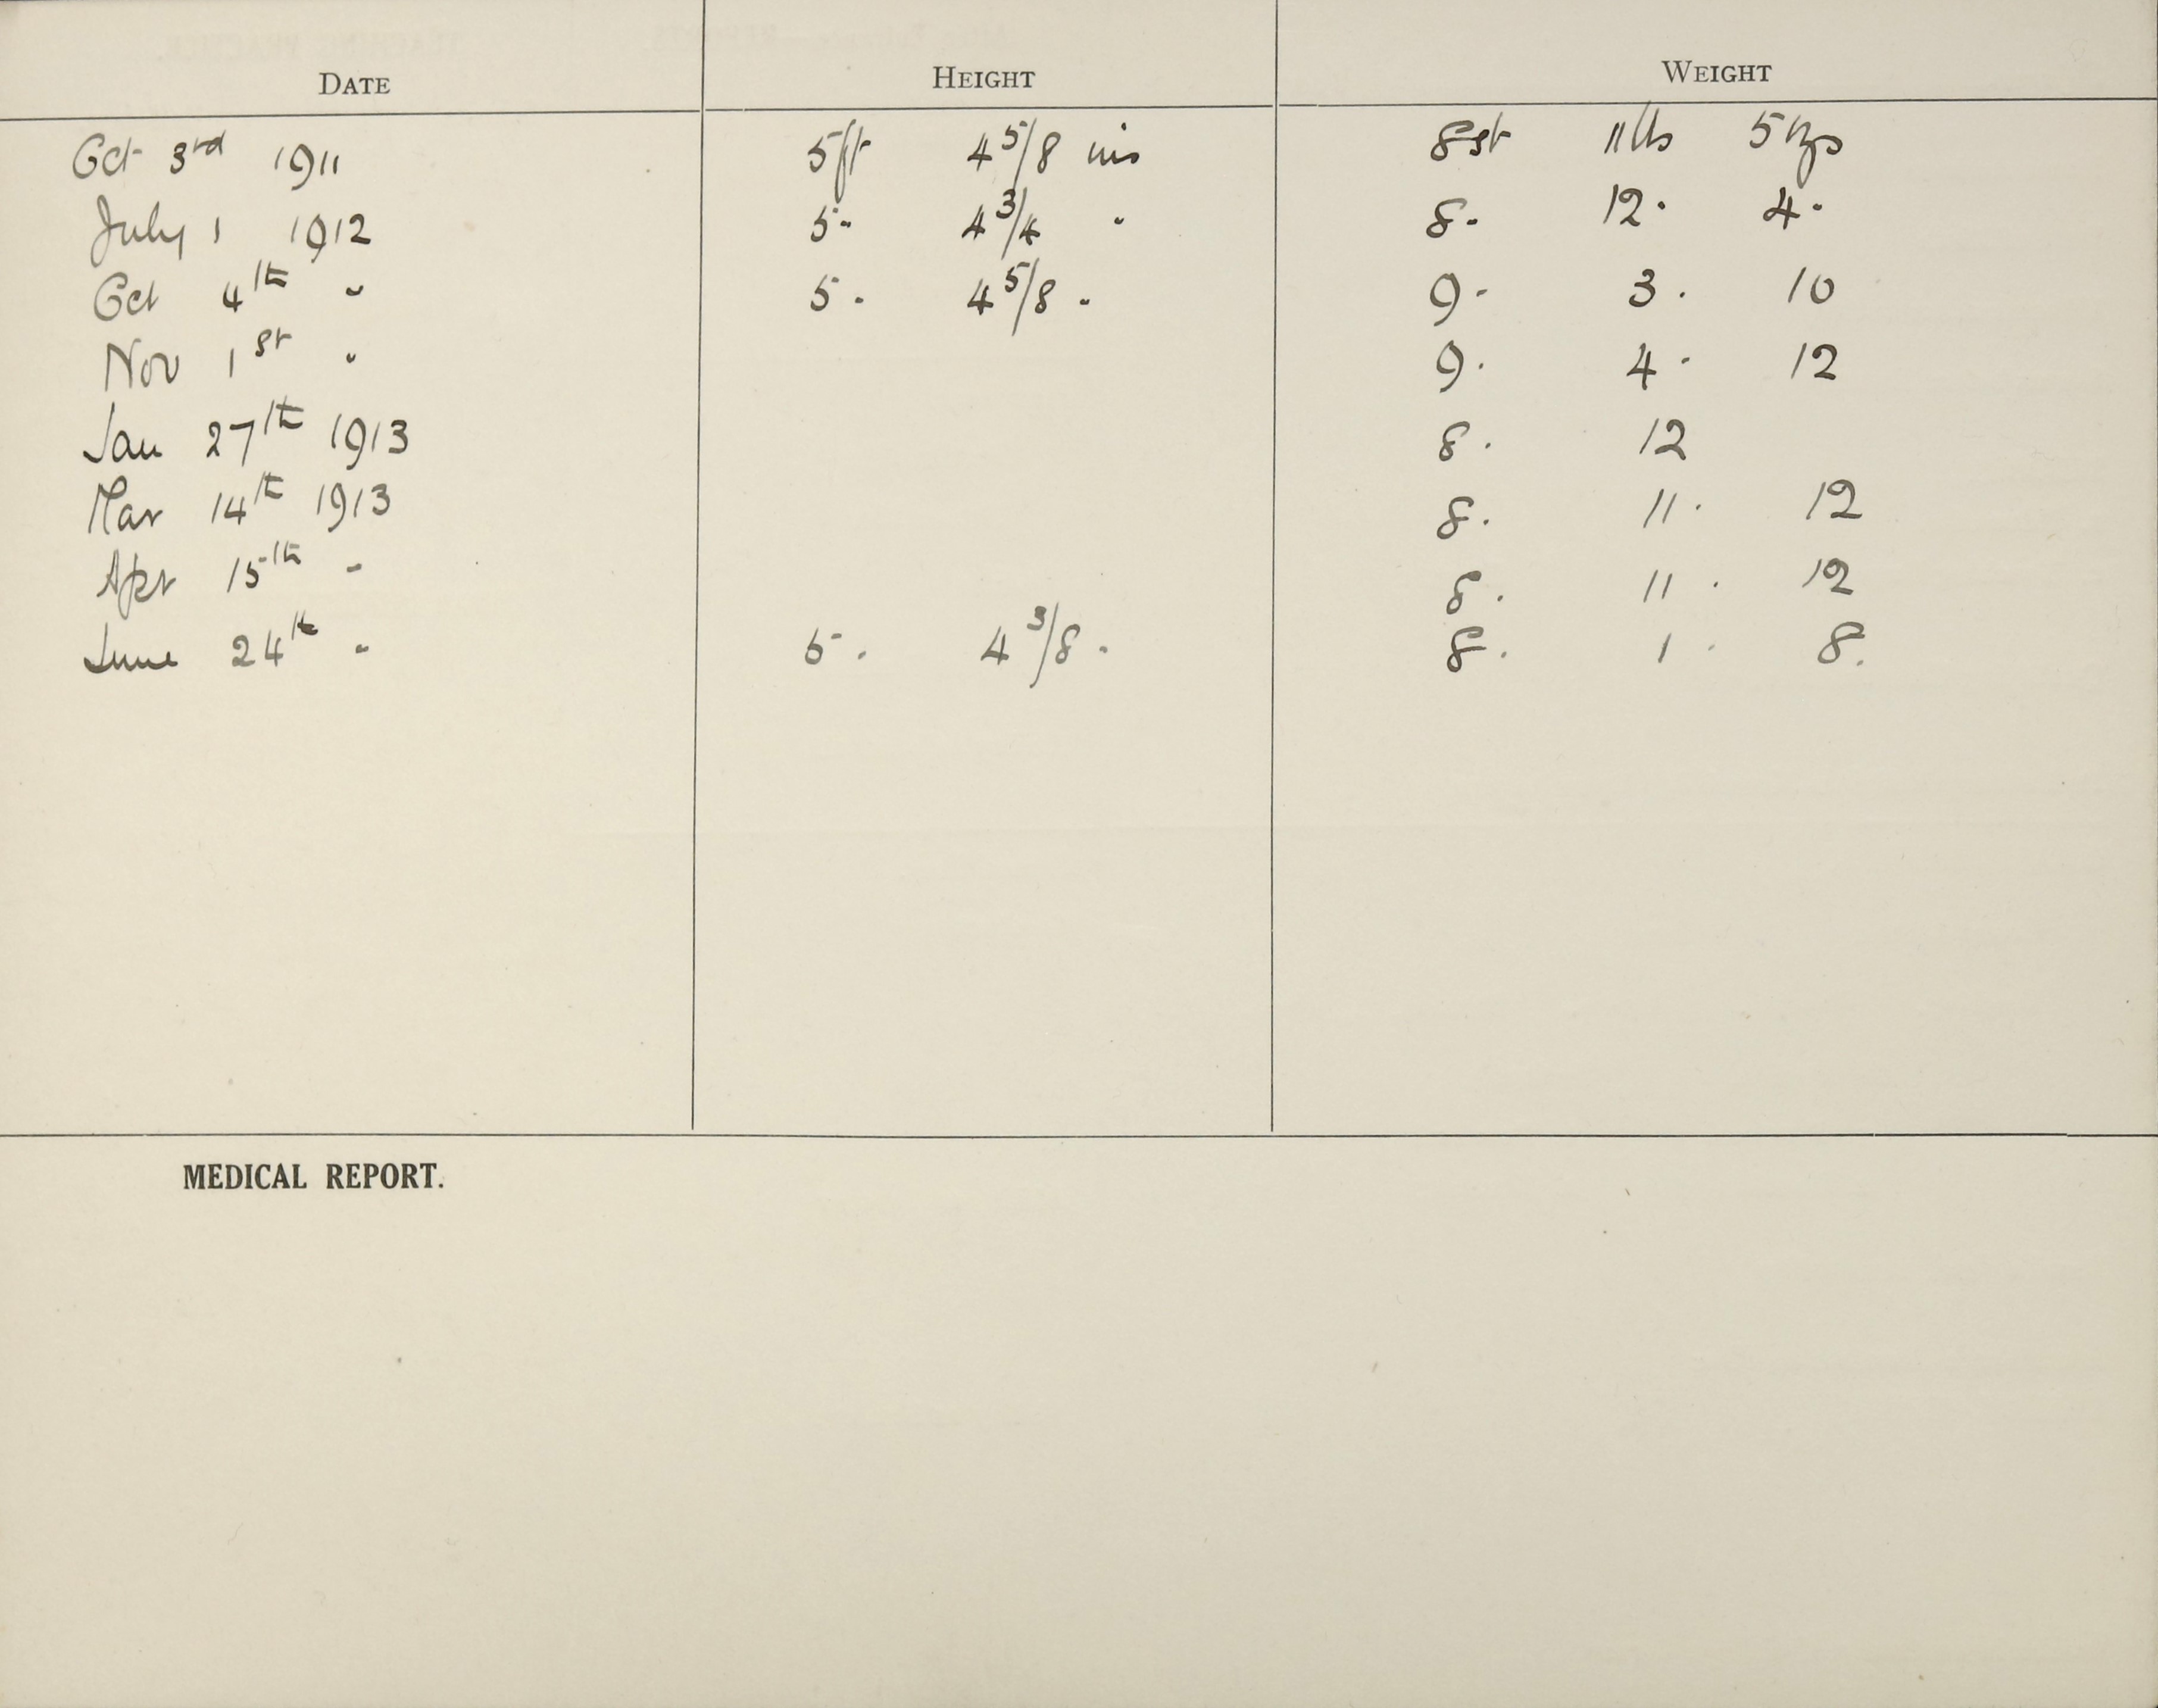 DATE HEIGHT WEIGHT
Oct 3rd 1911 5ft 4 5/8 ins 8st 11lbs 5ozs
July 1 1912 5 " 4 3/4 " 8 - 12 . 4 .
Oct 4th " 5 . 4 5/8 . 9 - 3 . 10
Nov 1st " 9 . 4 . 12
Jan 27th 1913 8 . 12
Mar 14th 1913 8 . 11 . 12
Apr 15th " 8 . 11 . 12
June 24th " 5 . 4 3/8 . 8 . 1 . 8 .
MEDICAL REPORT.